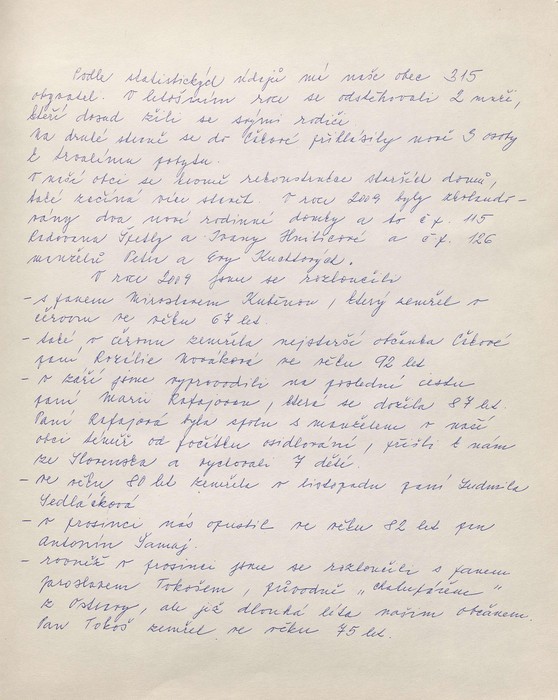 Podle statistických údajů má naše obec 315
obyvatel. V letošním roce se odstěhovali 2 muži,
kteří dosud žili se svými rodiči
Na druhé straně se do Čikové přihlásily nově 3 osoby
k trvalému pobytu.
V naší obci se kromě rekonstrukce starších domů,
také začíná více stavět. V roce 2009 byly zkolaudo-
vány dva nové rodinné domky a to č.p. 115
Radovana Špetly a Ivany Hnilicové a č.p. 126
manželů Petra a Evy Kuchtových.
V roce 2009 jsme se rozloučili
- s panem Miroslavem Kuběnou, který zemřel v
červnu ve věku 67 let.
- také v červnu zemřela nejstarší občanka Čikové
paní Rozálie Nováková ve věku 92 let
- v září jsme vyprovodili na poslední cestu
paní Marii Rafajovou, která se dožila 87 let.
Paní Rafajová byla spolu s manželem v naší
obci téměř od počátku osidlování, přišli k nám
ze Slovenska a vychovali 7 dětí.
- ve věku 80 let zemřela v listopadu paní Ludmila
Sedláčková
- v prosinci nás opustil ve věku 82 let pan
Antonín Šamaj.
- rovněž v prosinci jsme se rozloučili s panem
Jaroslavem Tokošem, původně „chalupářem"
z Ostravy, ale již dlouhá léta naším občanem.
Pan Tokoš zemřel ve věku 75 let.